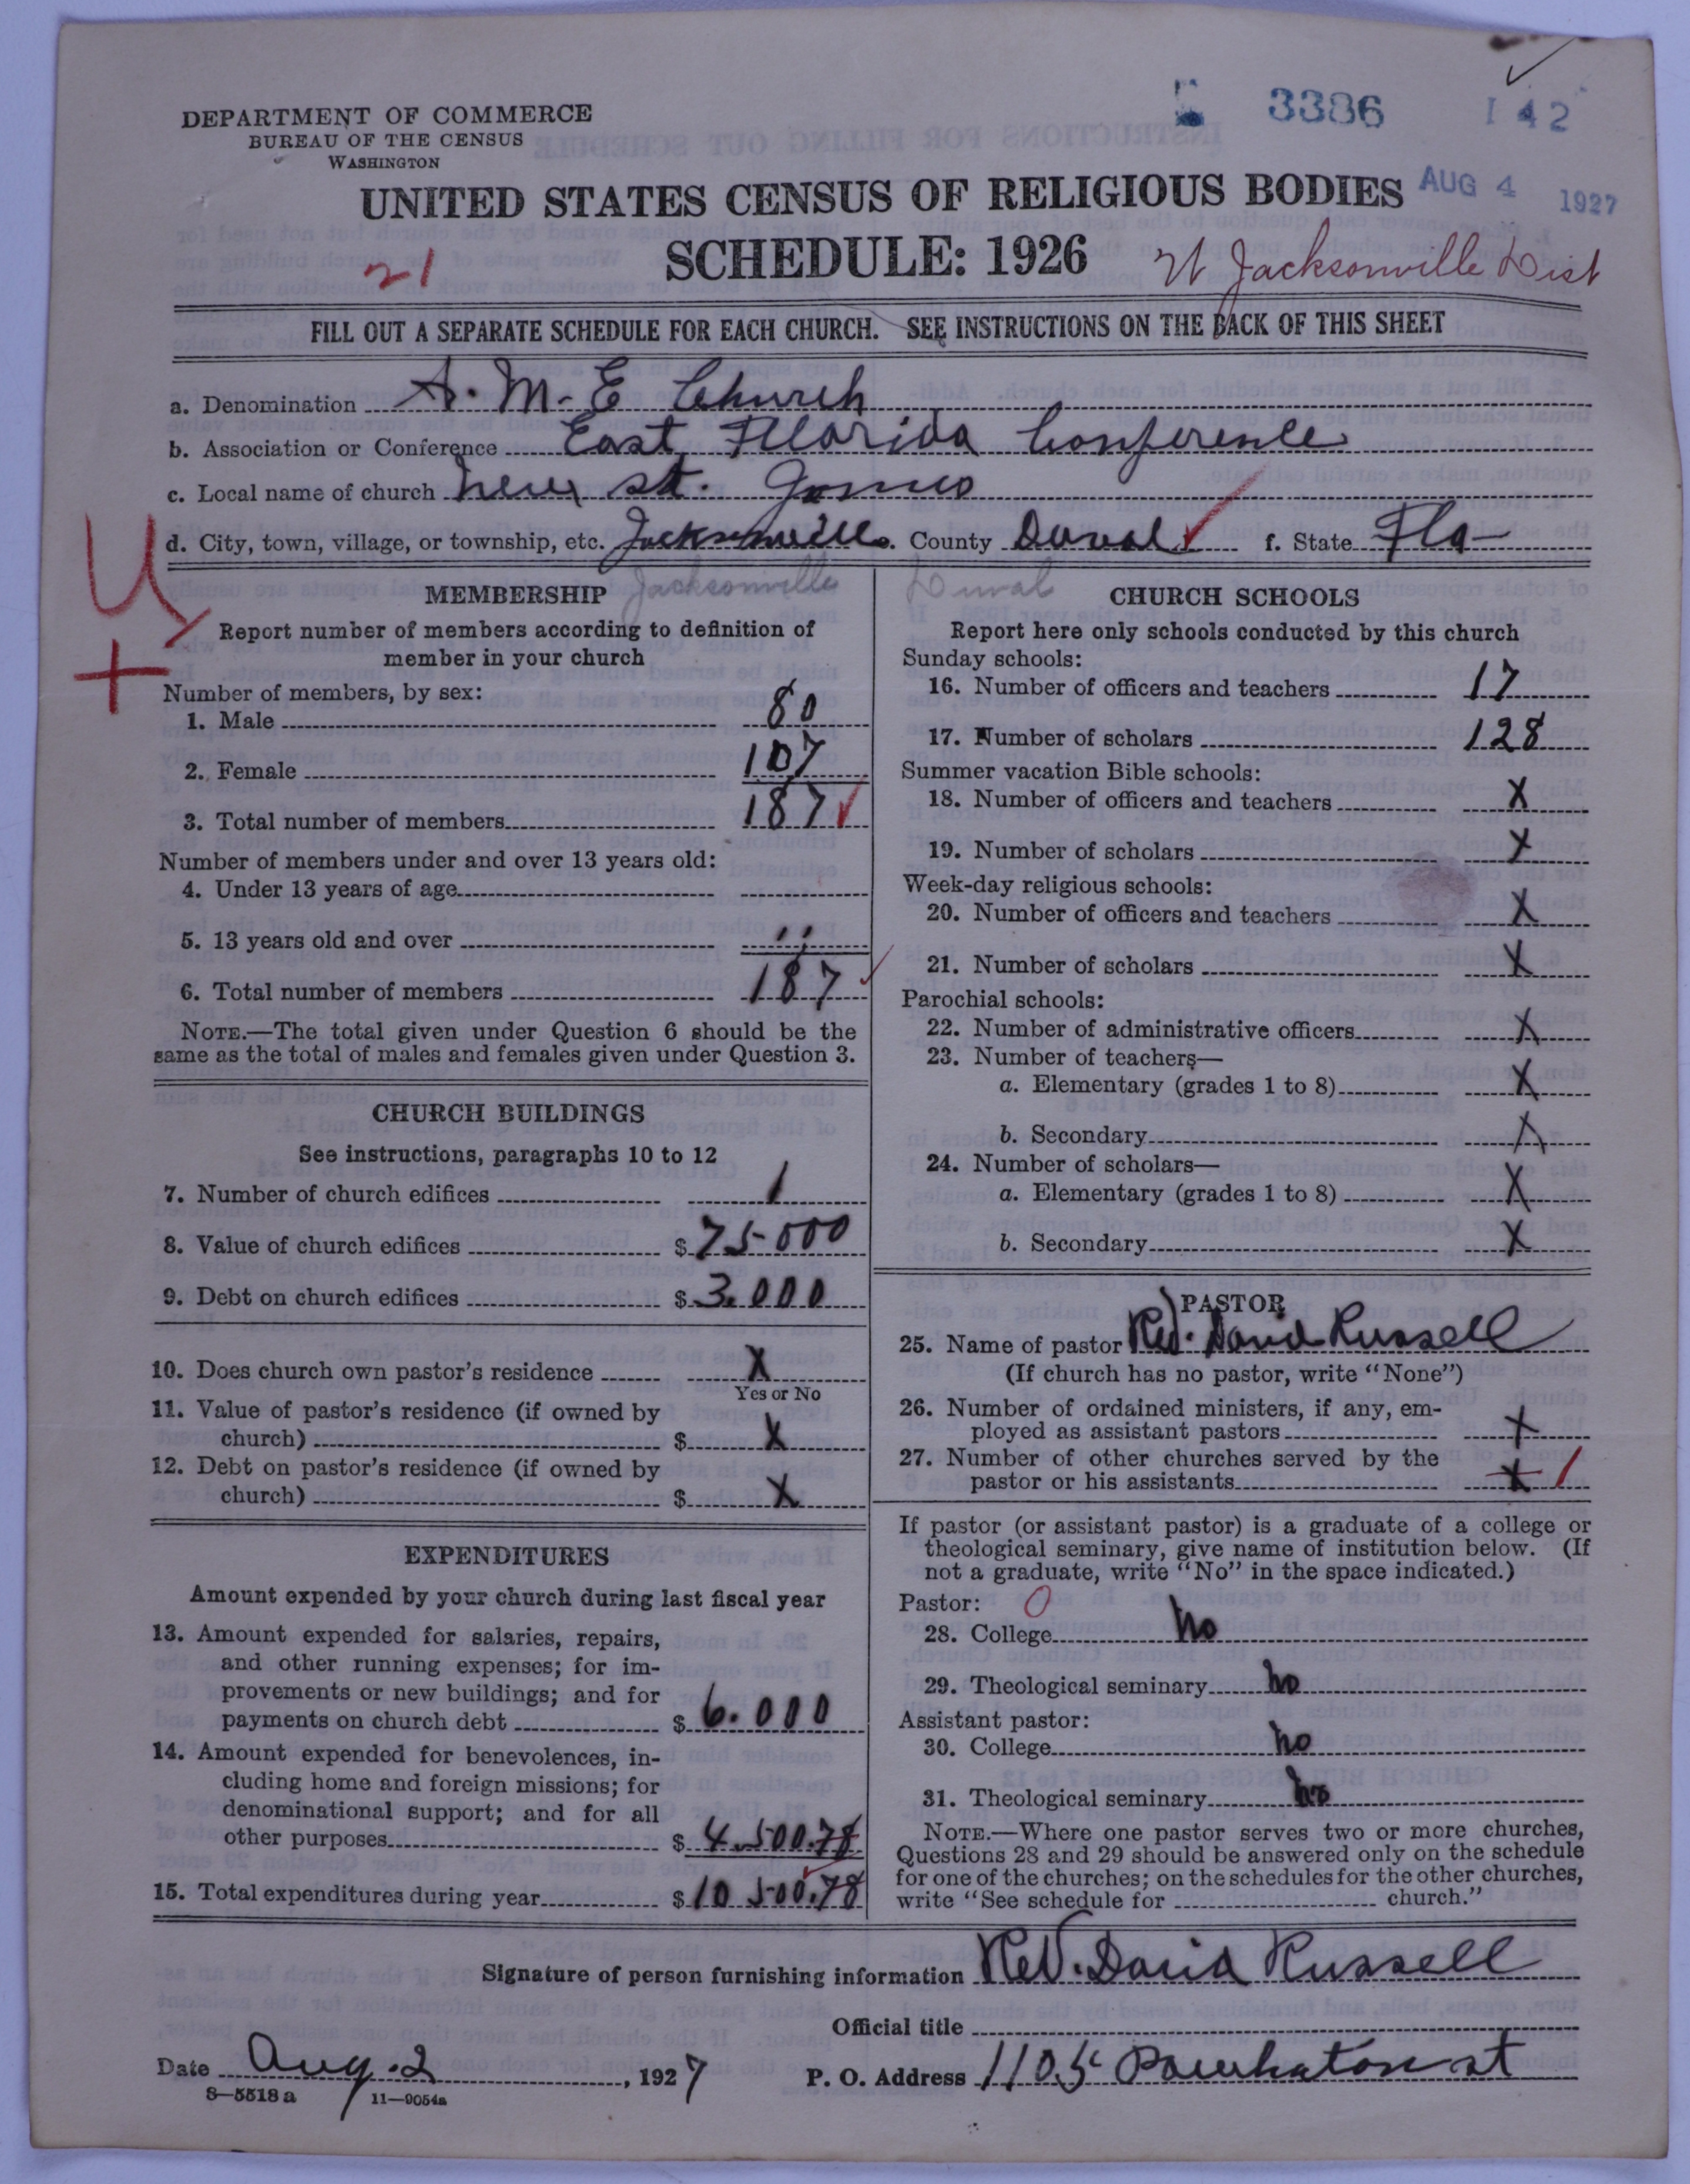 DEPARTMENT OF COMMERCE
BUREAU OF THE CENSUS
WASHINGTON
3386 142
AUG 4 1927
UNITED STATES CENSUS OF RELIGIOUS BODIES
SCHEDULE: 1926
21
W Jacksonville Dist
FILL OUT A SEPARATE SCHEDULE FOR EACH CHURCH. SEE INSTRUCTIONS ON THE BACK OF THIS SHEET
a. Denomination A. M. E Church
b. Association or Conference East Fllorida Conference
c. Local name of church New st. James
d. City, town, village, or township, etc. Jacksonville. County Duval f. State Fla
Jacksonville Duval
U
+
MEMBERSHIP
Report number of members according to definition of
member in your church
Number of members, by sex:
1. Male 80
2. Female 107
3. Total number of members 187
Number of members under and over 13 years old:
4. Under 13 years of age
5. 13 years old and over ,,
6. Total number of members 187
NOTE.—The total given under Question 6 should be the
same as the total of males and females given under Question 3.
CHURCH BUILDINGS
See instructions, paragraphs 10 to 12
7. Number of church edifices 1
8. Value of church edifices $ 75000
9. Debt on church edifices $ 3.000
10. Does church own pastor's residence X
Yes or No
11. Value of pastor's residence (if owned by
church) $ X
12. Debt on pastor's residence (if owned by
church) $ X
EXPENDITURES
Amount expended by your church during last fiscal year
13. Amount expended for salaries, repairs,
and other running expenses; for im-
provements or new buildings; and for
payments on church debt $ 6.000
14. Amount expended for benevolences, in-
cluding home and foreign missions; for
denominational support; and for all
other purposes $ 4.500.78
15. Total expenditures during year $ 10 500.78
CHURCH SCHOOLS
Report here only schools conducted by this church
Sunday schools:
16. Number of officers and teachers 17
17. Number of scholars 128
Summer vacation Bible schools:
18. Number of officers and teachers X
19. Number of scholars X
Week-day religious schools:
20. Number of officers and teachers X
21. Number of scholars X
Parochial schools:
22. Number of administrative officers X
23. Number of teachers—
a. Elementary (grades 1 to 8) X
b. Secondary X
24. Number of scholars—
a. Elementary (grades 1 to 8) X
b. Secondary X
PASTOR
25. Name of pastor Rev. David Russell
(If church has no pastor, write "None")
26. Number of ordained ministers, if any, em-
ployed as assistant pastors X
27. Number of other churches served by the
pastor or his assistants X 1
If pastor (or assistant pastor) is a graduate of a college or
theological seminary, give name of institution below. (If
not a graduate, write "No" in the space indicated.)
Pastor: 0
28. College No
29. Theological seminary No
Assistant pastor:
30. College No
31. Theological seminary No
NOTE.—Where one pastor serves two or more churches,
Questions 28 and 29 should be answered only on the schedule
for one of the churches; on the schedules for the other churches,
write "See schedule for church."
Signature of person furnishing information Rev. David Russell
Official title
Date Aug. 2, 1927 P. O. Address 1105 Powhaton st
8—5518 a 11—9054a